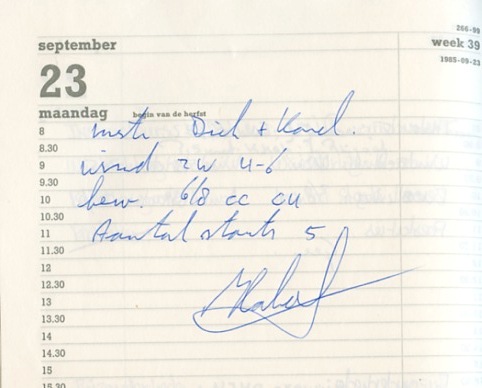 266-99
september
week 39
1985-09-23
23
maandag begin van de herfst
8 instr Dick + Karel.
8.30
9 wind zw 4-6
9.30
10 bew. 6/8 cc cu
10.30
11 Aantal starts 5
11.30
12
12.30
13
13.30
14
14.30
15
15.30